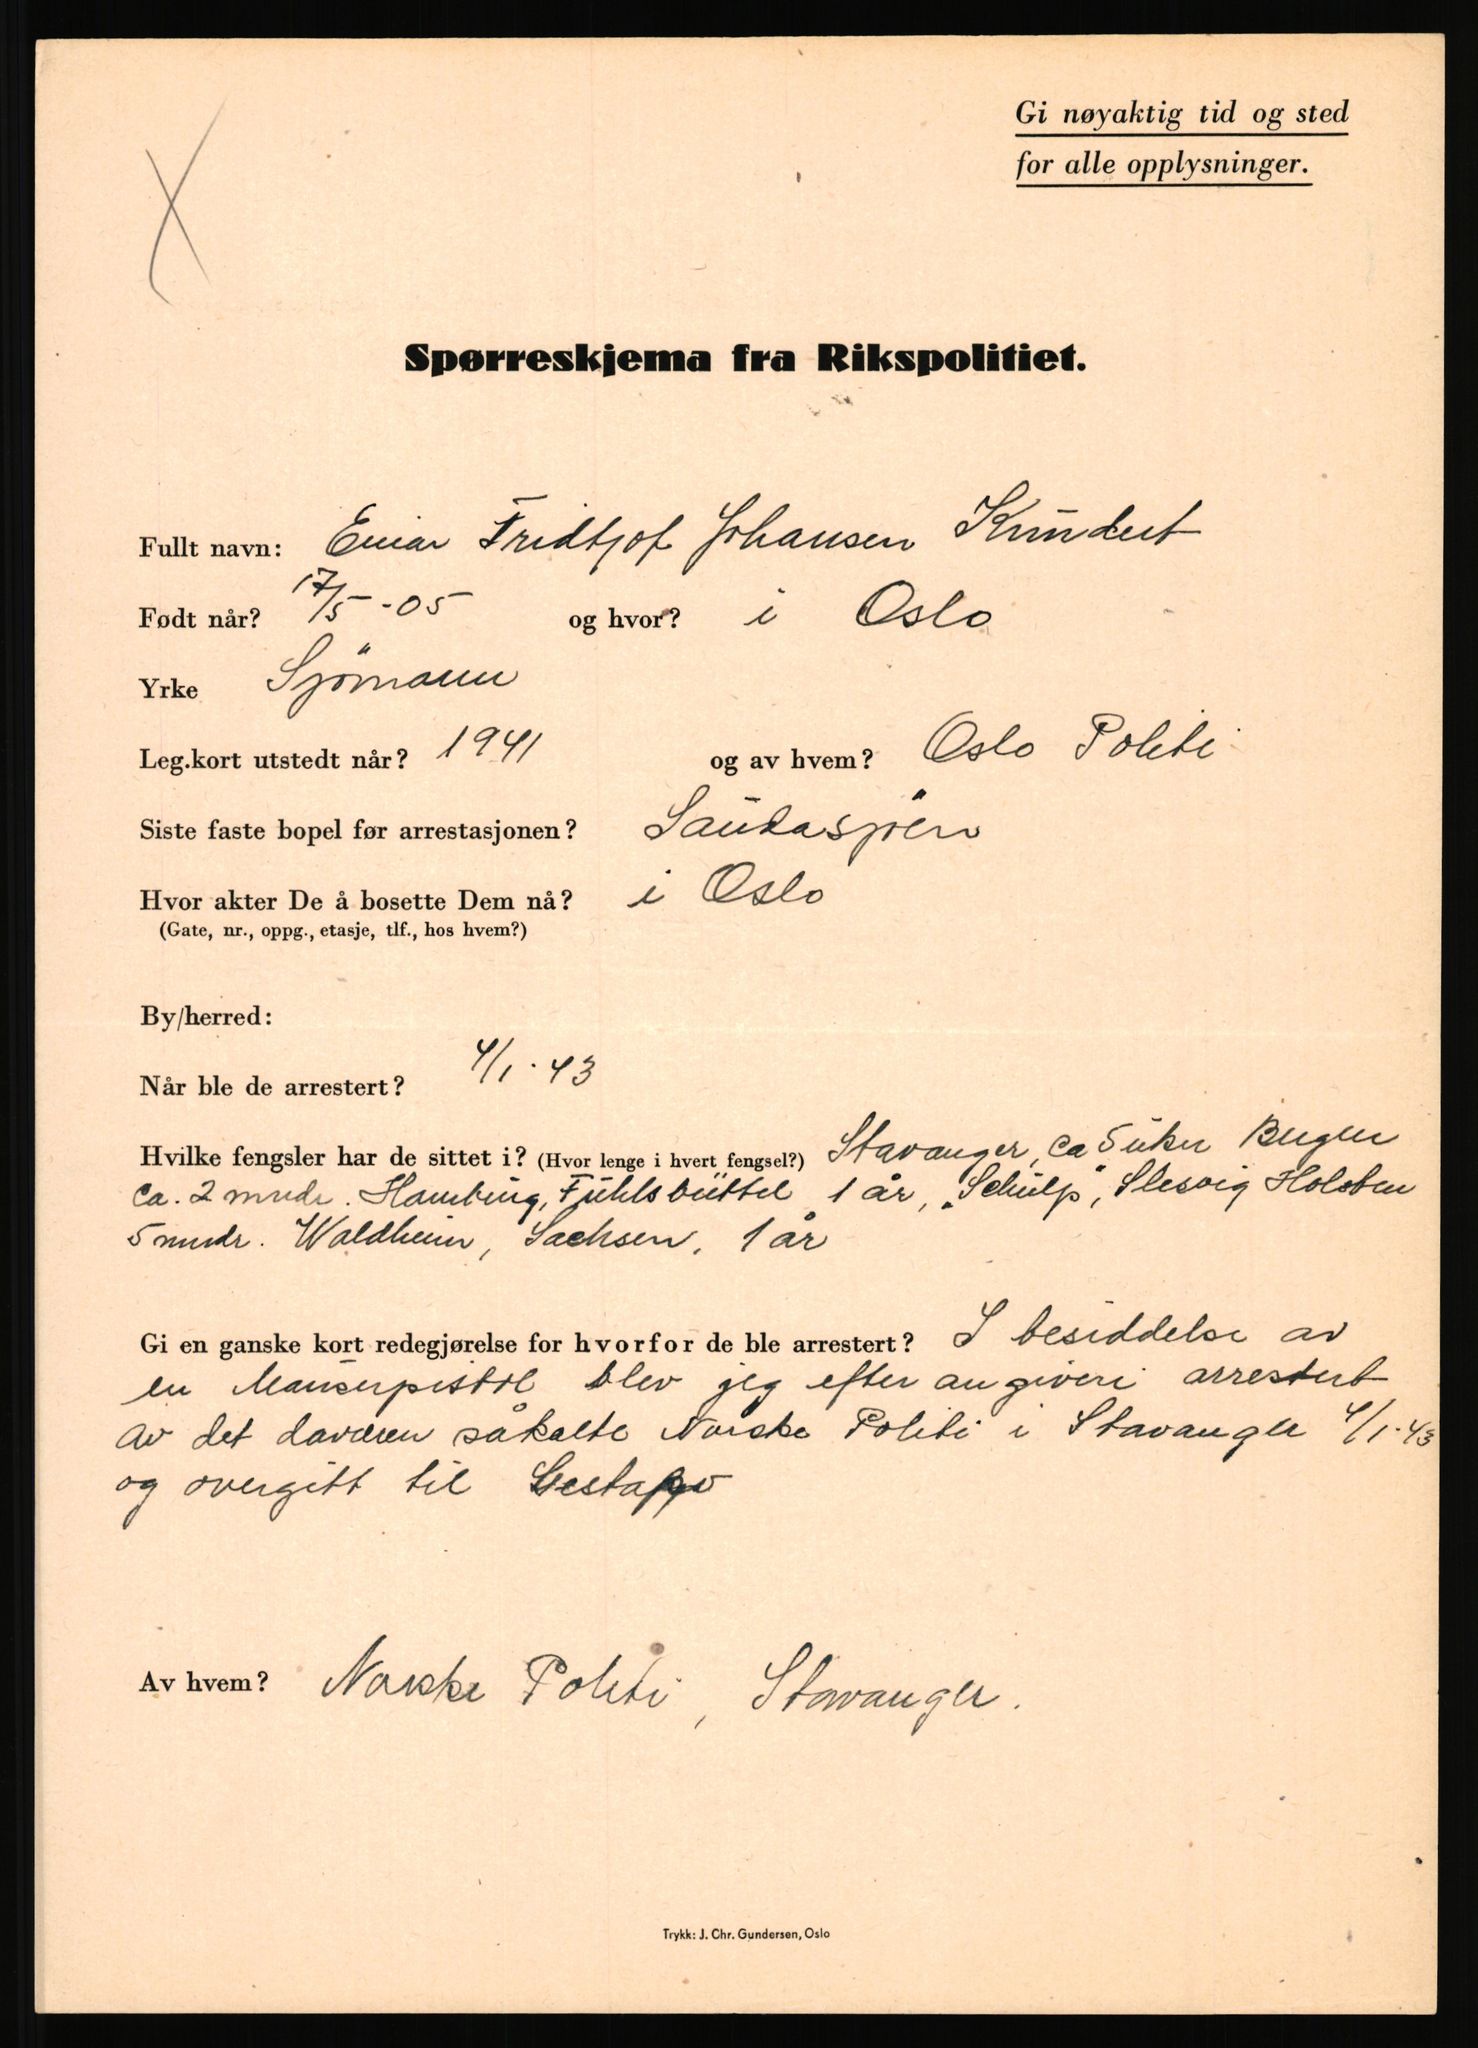 Gi nøyaktig tid og sted
for alle opplysninger.
Spørreskjema fra Rikspolitiet.
Fullt navn: Einar Fridtjof Johansen Kundert
Født når? 17/5-05 og hvor? i Oslo
Yrke Sjömann
Leg.kort utstedt når? 1941 og av hvem? Oslo Politi
Siste faste bopel før arrestasjonen? Saudasjöen
Hvor akter De å bosette Dem nå? i Oslo
(Gate, nr., oppg., etasje, tlf., hos hvem?)
By/herred:
Når ble de arrestert? 4/1.43
Hvilke fengsler har de sittet i? (Hvor lenge i hvert fengsel?) Stavanger, ca 5 uker Bergen
ca. 2 mndr. Hamburg, Fuhlsbüttel 1 år, „Schülp", Slesvig Holsten
5 mndr. Waldheim, Sachsen, 1 år
Gi en ganske kort redegjørelse for hvorfor de ble arrestert? I besiddelse av
en Mauserpistol blev jeg efter angiveri arrestert
av det daværen såkalte Norske Politi i Stavanger 4/1.43
og overgitt til Gestapo
Av hvem? Norske Politi, Stavanger.
Trykk: J. Chr. Gundersen, Oslo